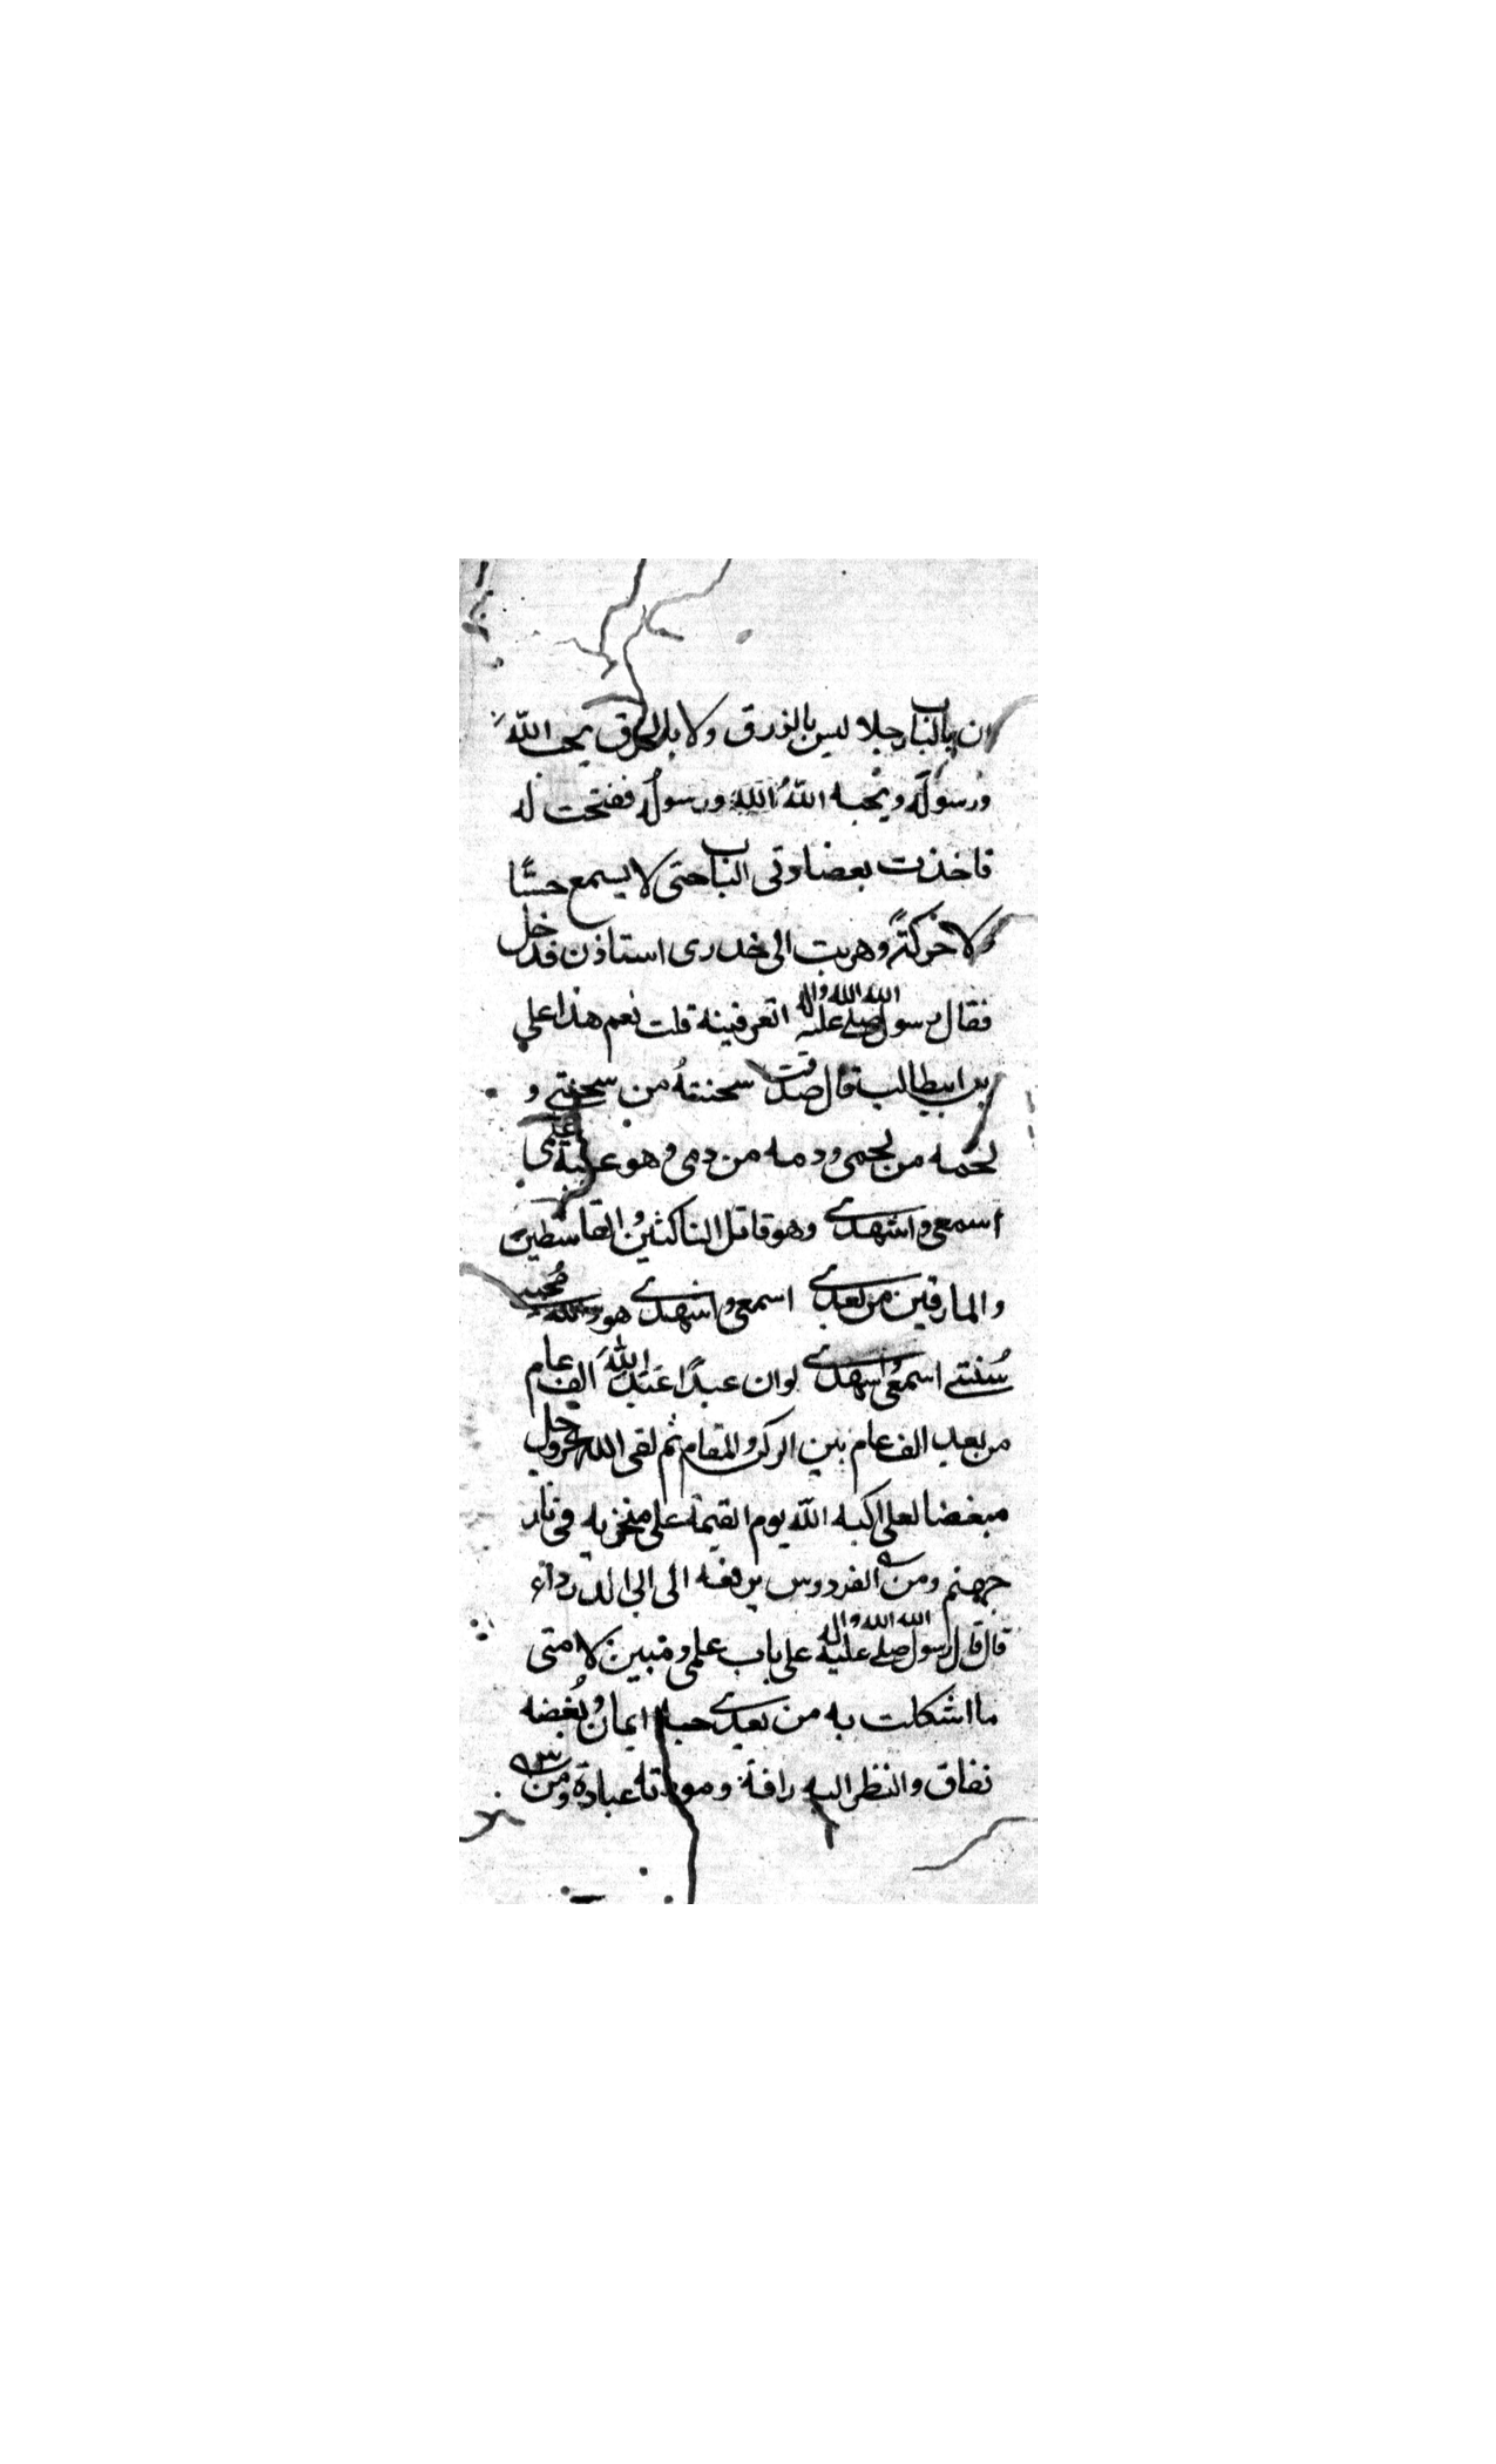 ان بالباب رجلا ليس بالنزق ولا بالخرق يحب الله
ورسوله ويحبه الله ورسوله ففتحت له
فاخذت بعضاوتى الباب حتى لا يسمع حسًا
ولا حركةً وهربت الى خدرى استاذن فدخل
فقال رسول الله صلى الله عليه واله اتعرفينه قلت نعم هذا على
بن ابيطالب قال صدقت سحنته من سحنتى و
لحمه من لحمى ودمه من دمى وهو عيبة علمى
اسمعى واشهدى وهو قاتل الناكثين والقاسطين
والمارقين من بعدى اسمعى واشهدى هو والله محيى
سُنتى اسمعى واشهدى لو ان عبدًا عَبَدَ اللهَ الف عام
من بعد الف عام بين الركن والمقام ثم لقى الله عزوجل
مبغضا لعلى اكبه الله يوم القيمة على منخريه فى نار
جهنم ومن الفردوس يرفعه الى ابى الدرداء
قال قال رسول الله صلى الله عليه واله على باب علمى ومبين لامتى
ما اشكلت به من بعدى حبه ايمان وبُغضه
نفاق والنظر اليه رافة ومودته عبادة ومن